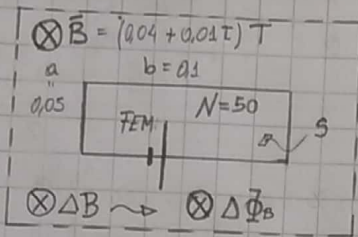 ⊗ B̄ = (0,04 + 0,01t) T
a b = 0,1
"
0,05 FEM N=50 S
⊗ ΔB ⇝ ⊗ ΔΦ⃗_B